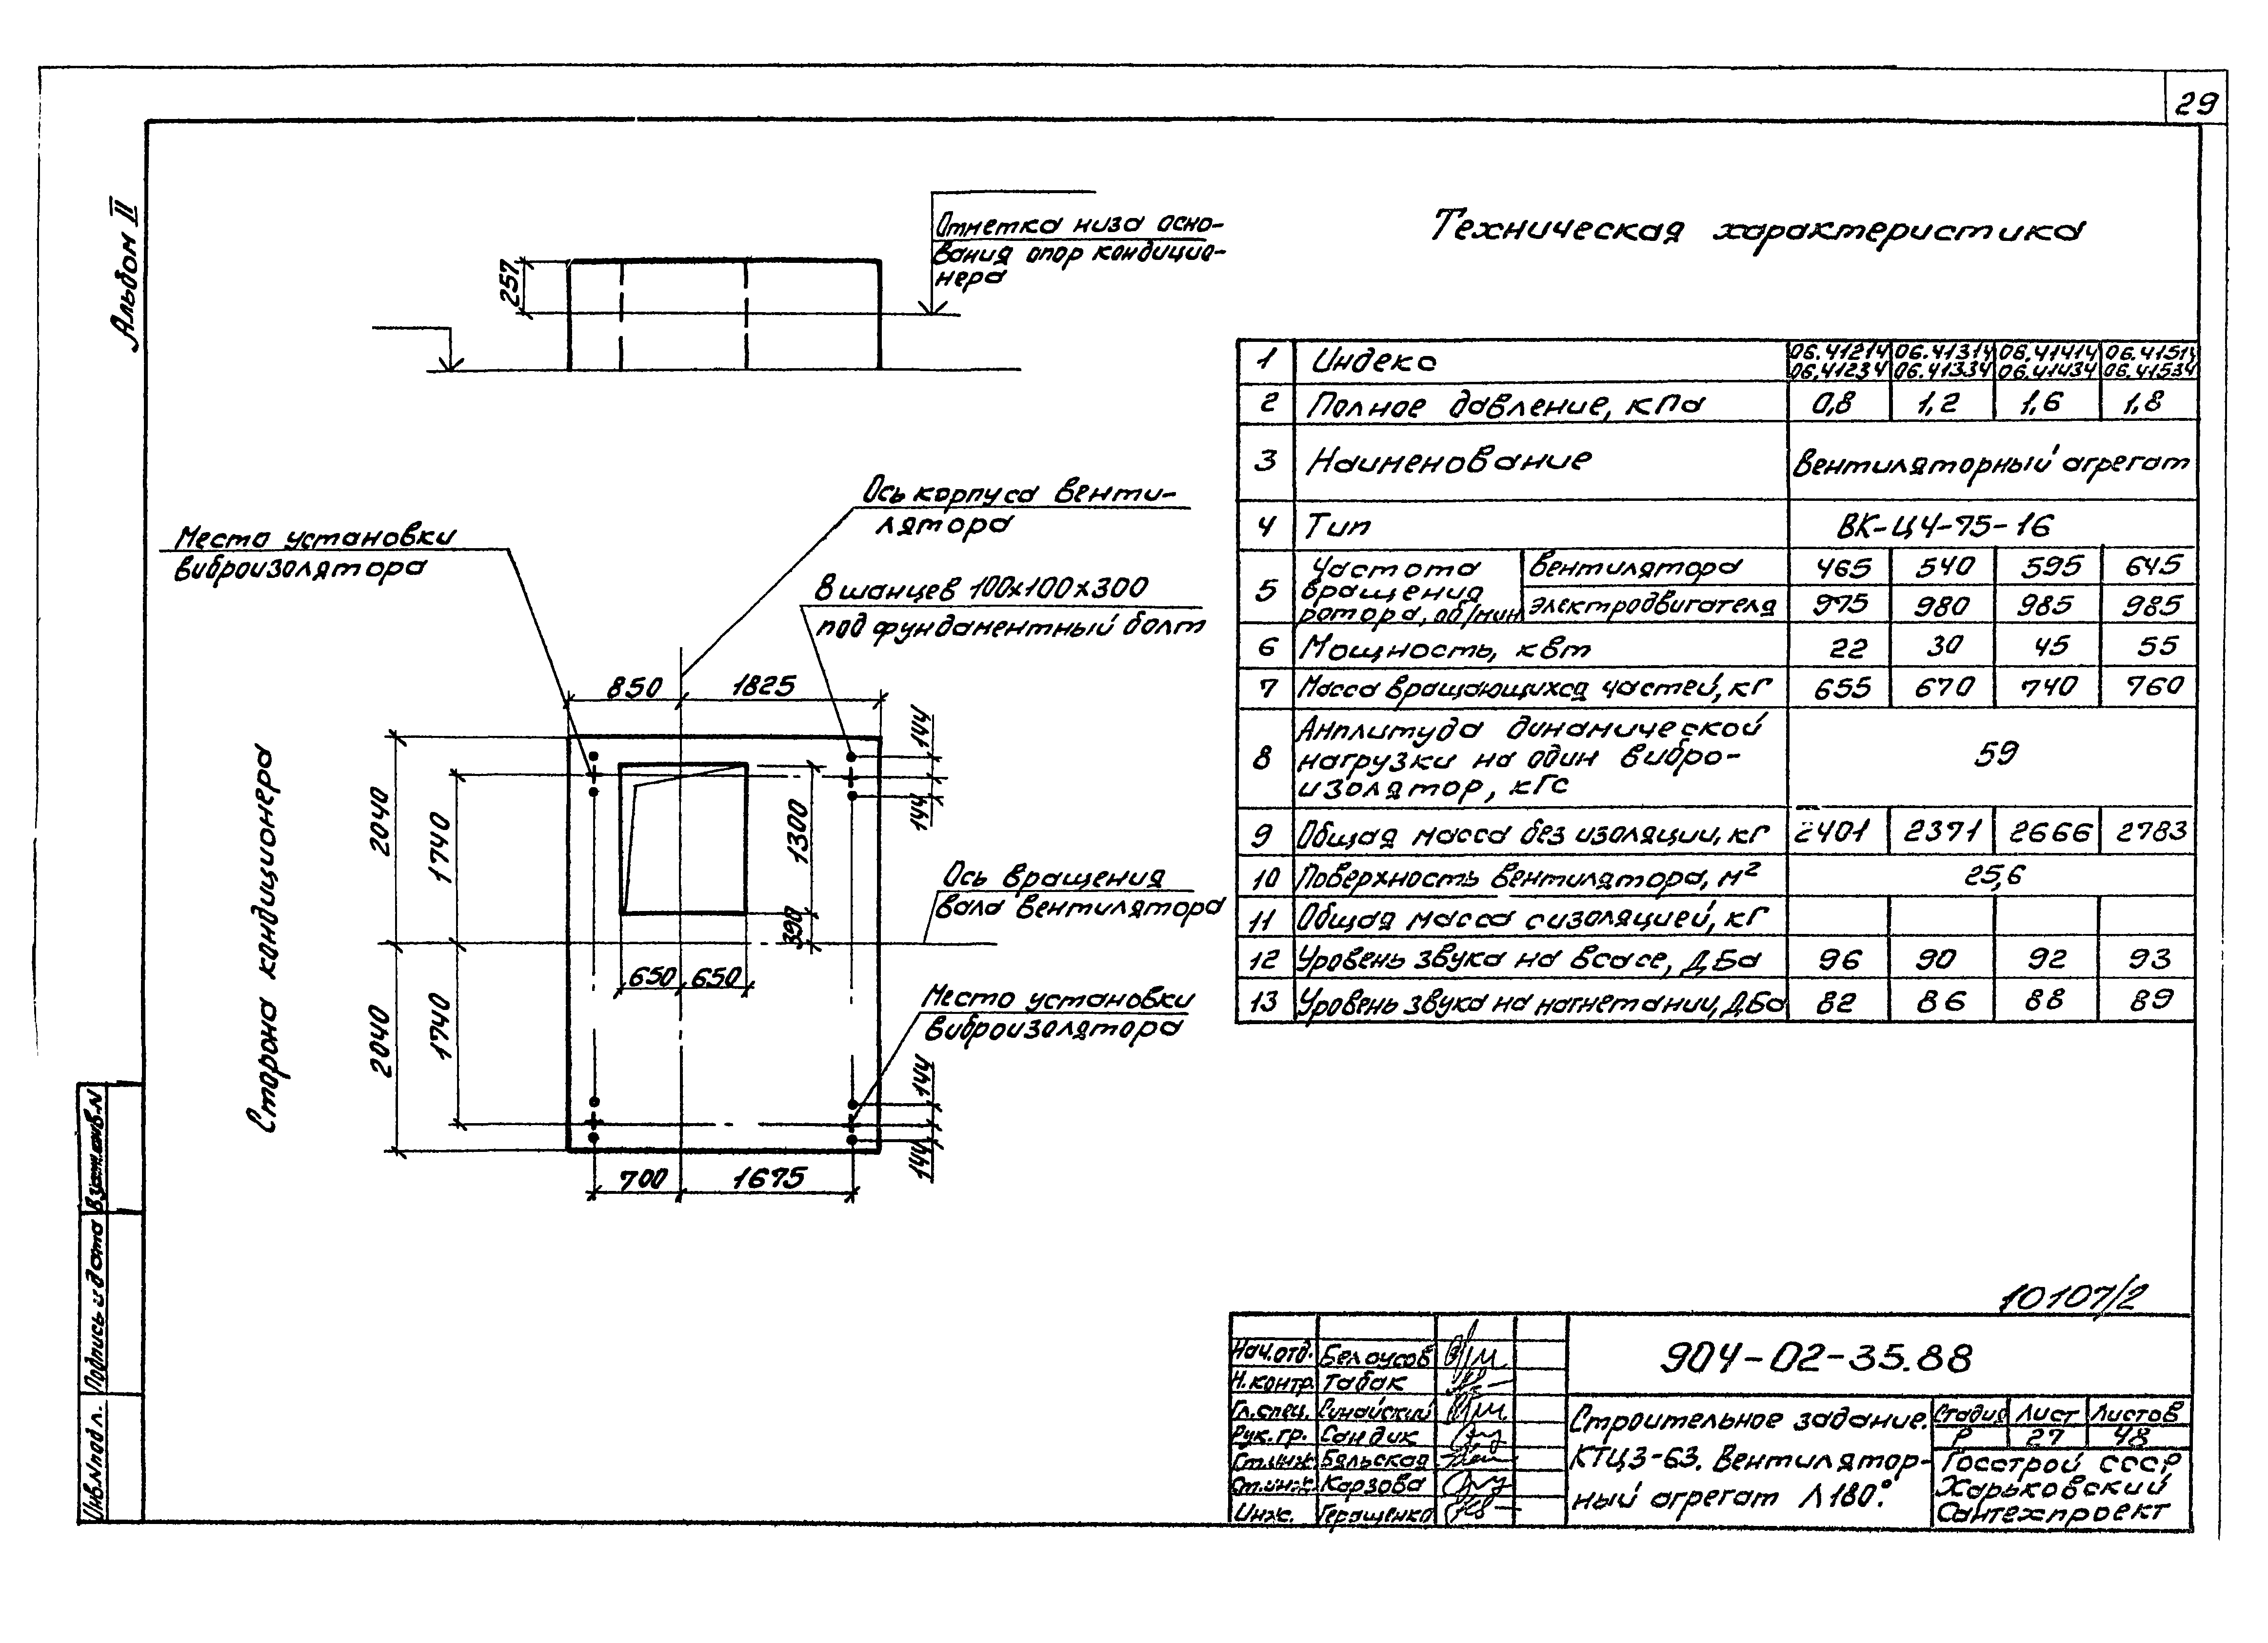 29
Альбом II
Отметка низа осно-
вания опор кондицио-
нера
257
Техническая характеристика
Ось корпуса венти-
лятора
Место установки
виброизолятора
8 шанцев 100х100х300
под фундаментный болт
850 1825
144
144
2040
1740
1300
390
Сторона кондиционера
Ось вращения
вала вентилятора
650 650
Место установки
виброизолятора
2040
1740
144
144
700 1675
1 Индекс 06.41214 06.41314 06.41414 06.41514
06.41234 06.41334 06.41434 06.41534
2 Полное давление, кПа 0,8 1,2 1,6 1,8
3 Наименование Вентиляторный агрегат
4 Тип ВК-Ц4-75-16
5 Частота вращения ротора, об/мин вентилятора 465 540 595 645
электродвигателя 975 980 985 985
6 Мощность, квт 22 30 45 55
7 Масса вращающихся частей, кг 655 670 740 760
8 Амплитуда динамической
нагрузки на один вибро-
изолятор, кгс 59
9 Общая масса без изоляции, кг 2401 2371 2666 2783
10 Поверхность вентилятора, м² 25,6
11 Общая масса с изоляцией, кг
12 Уровень звука на всасе, ДБа 96 90 92 93
13 Уровень звука на нагнетании, ДБа 82 86 88 89
10107/2
904-02-35.88
Нач.отд. Белоусов
Н.контр. Табак
Гл.спец. Синайский
Рук.гр. Сандик
Ст.инж. Бяльская
Ст.инж. Карзова
Инж. Геращенко
Строительное задание.
КТЦ3-63. Вентилятор-
ный агрегат Л180°.
Стадия Лист Листов
Р 27 48
Госстрой СССР
Харьковский
Сантехпроект
Взам.инв.N
Подпись и дата
Инв.N подл.